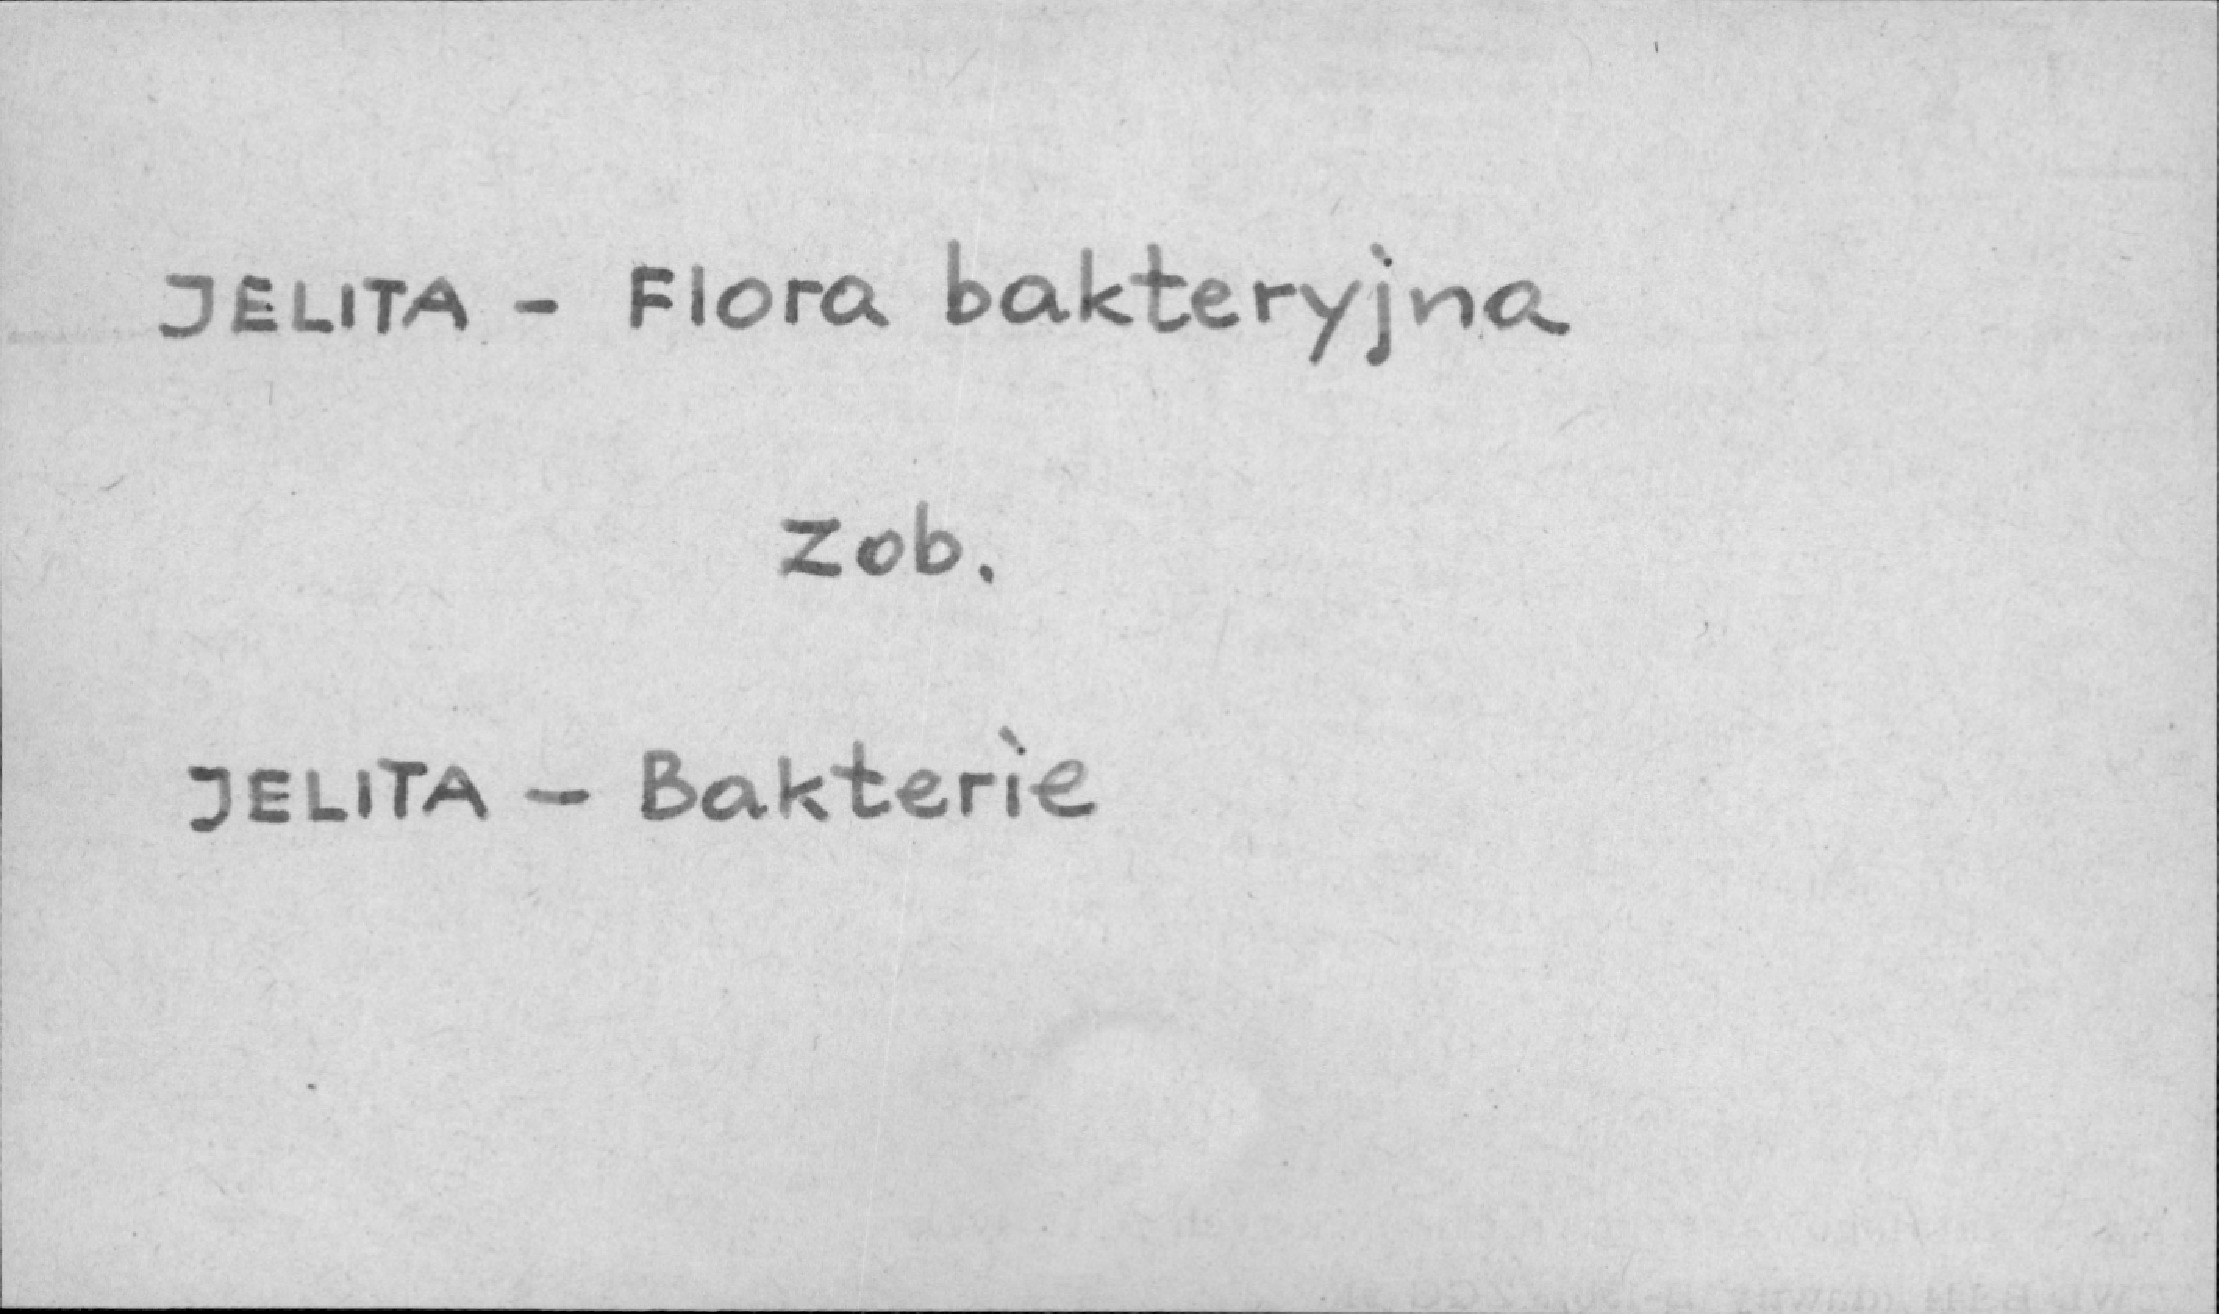 JELITA - Flora bakteryjna
Zob.
JELITA - Bakterie